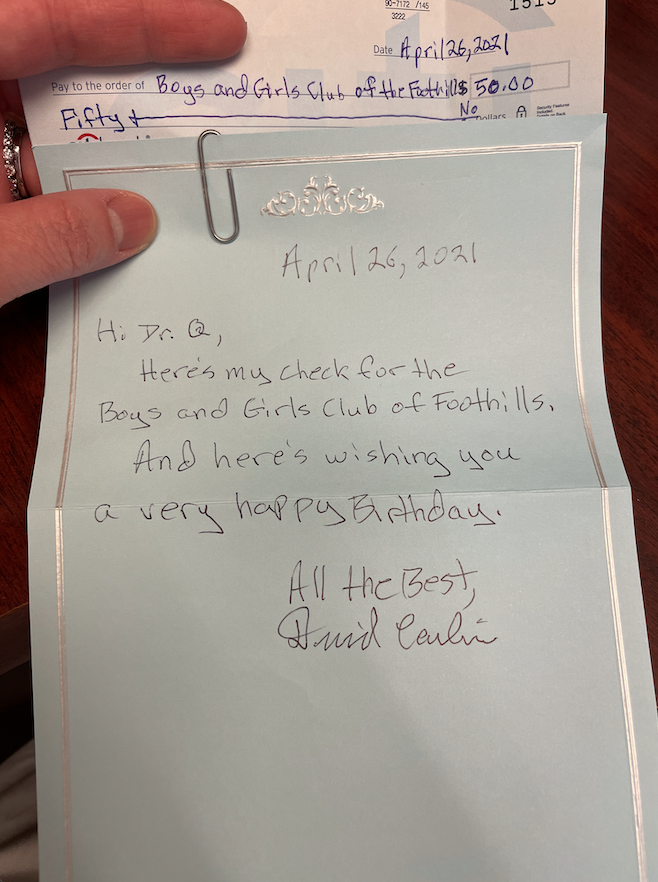 90-7172 /145
3222
1515
Date April 26, 2021
Pay to the order of Boys and Girls Club of the Foothills $ 50.00
Fifty + No Dollars
Security Features
Included.
Details on Back
April 26, 2021
Hi Dr. Q,
Here's my check for the
Boys and Girls Club of Foothills.
And here's wishing you
a very happy Birthday.
All the Best,
David